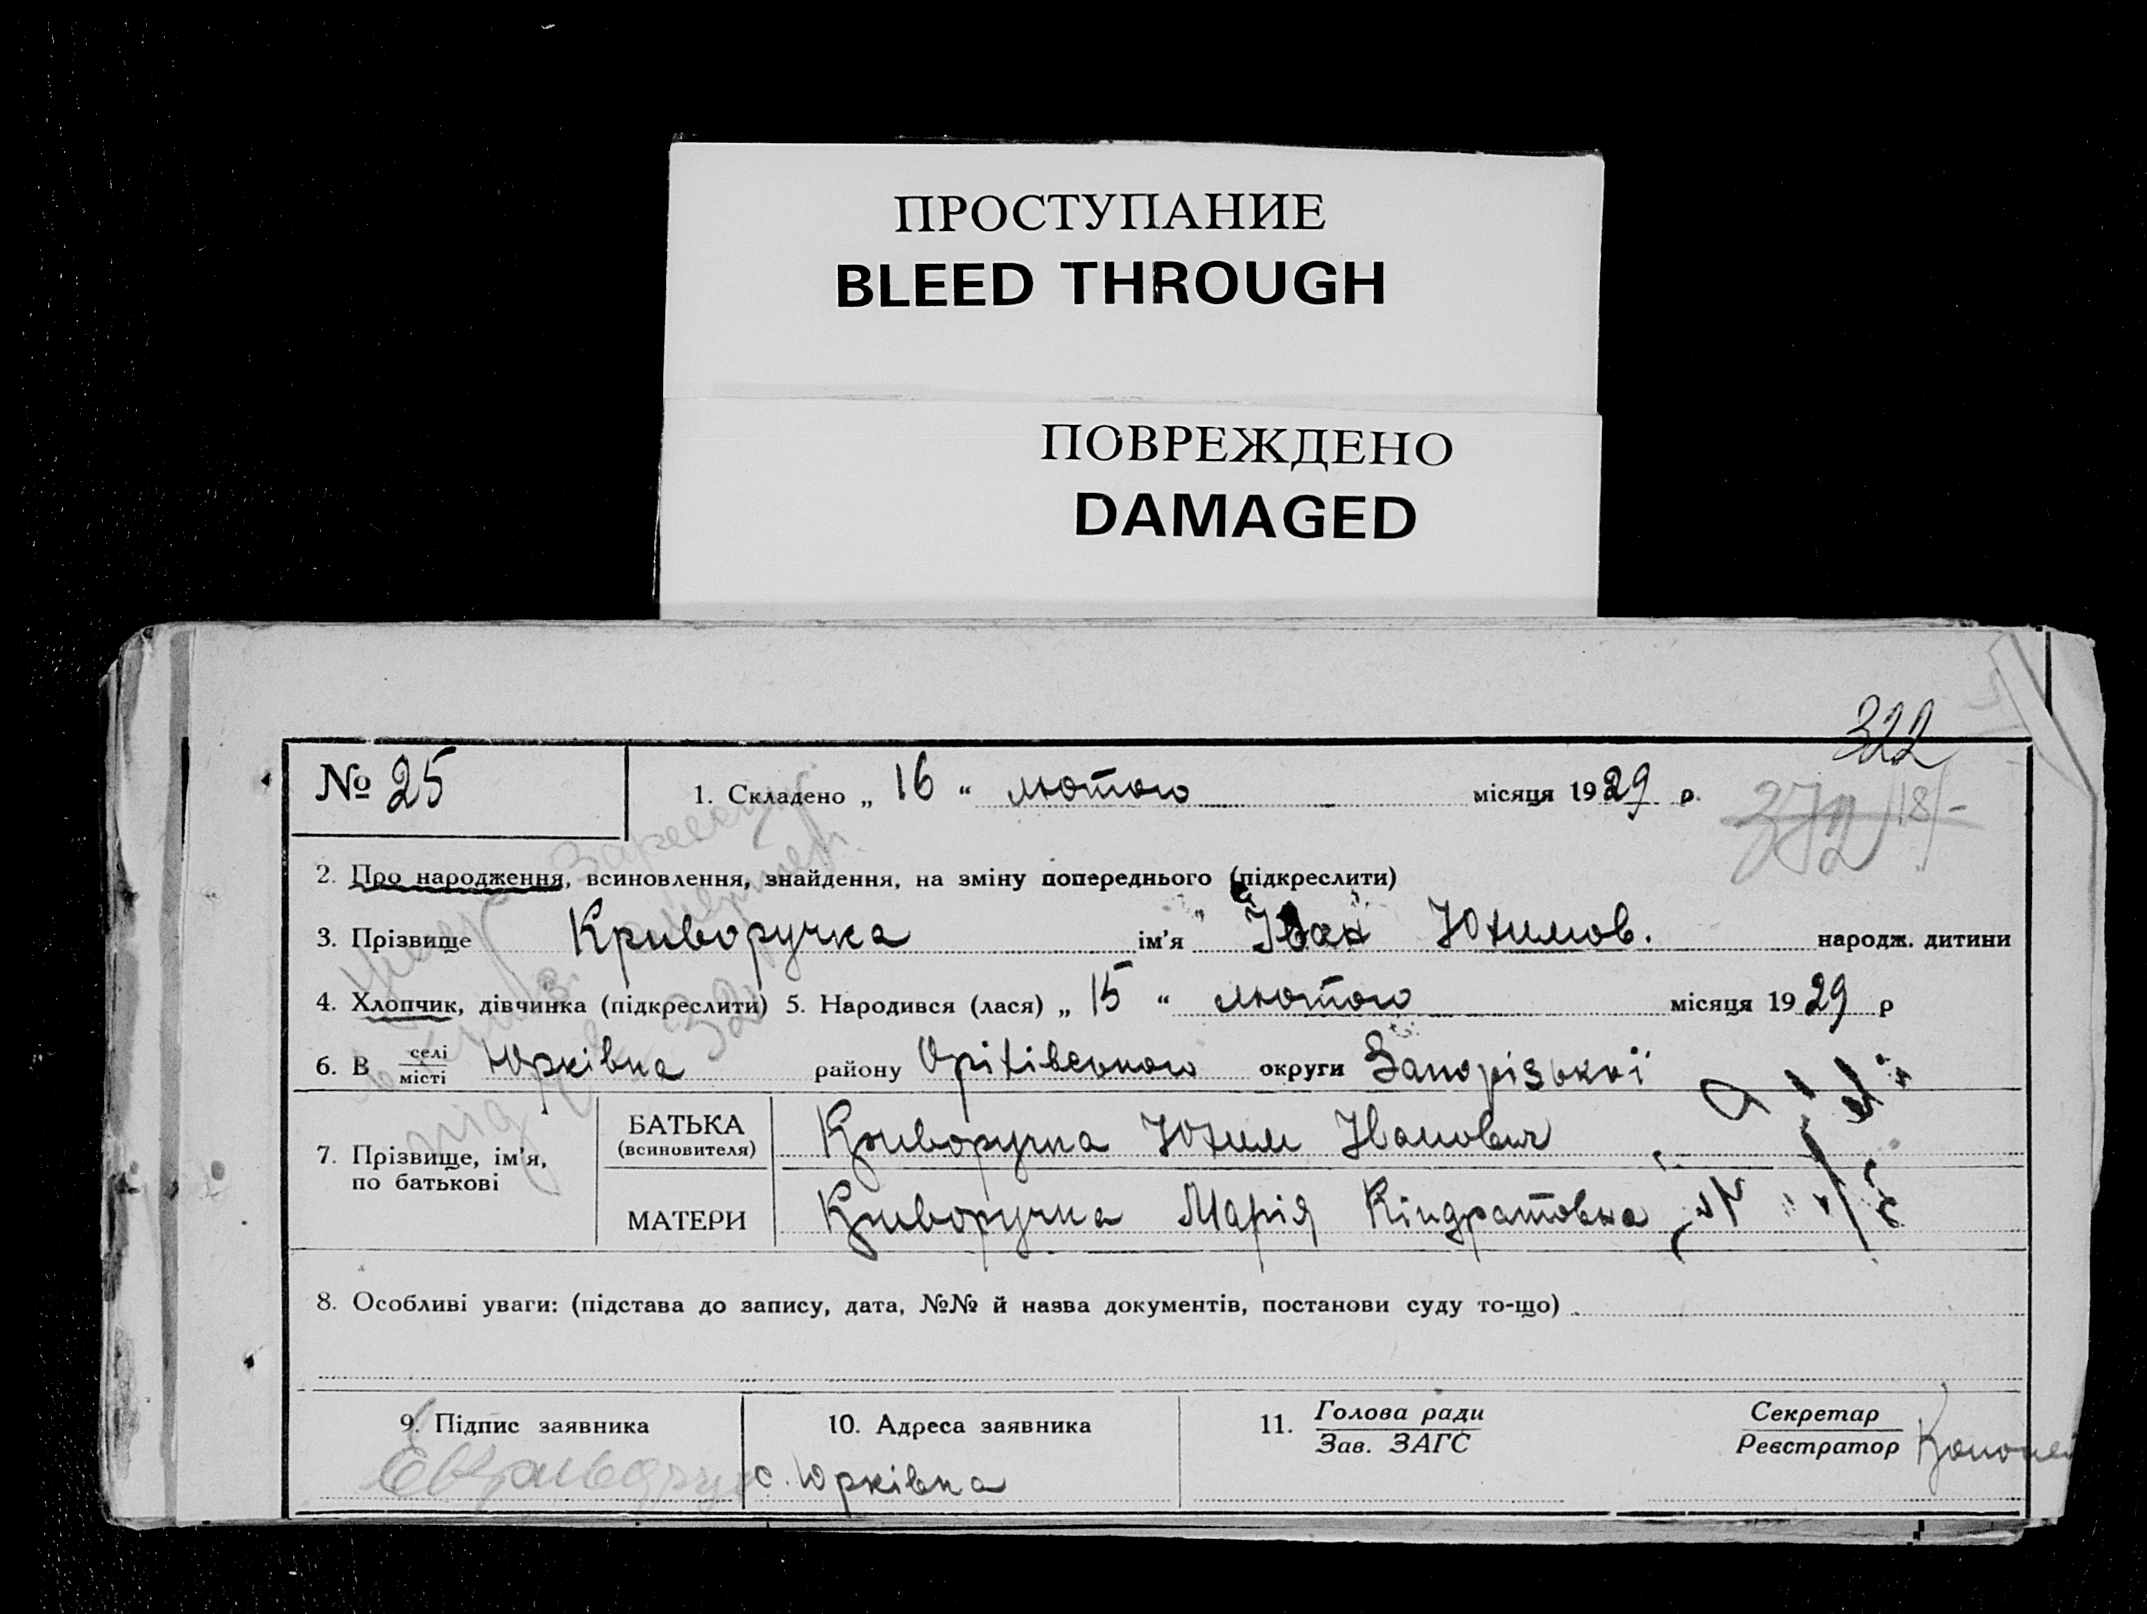 ПРОСТУПАНИЕ
BLEED THROUGH
ПОВРЕЖДЕНО
DAMAGED
322
№ 25
1. Складено „ 16 “ лютого місяця 1929 р.
372 18/-
2. Про народження, всиновлення, знайдення, на зміну попереднього (підкреслити)
3. Прізвище Криворучка ім'я Іван Юхимов. народж. дитини
4. Хлопчик, дівчинка (підкреслити) 5. Народився (лася) „ 15 “ лютого місяця 1929 р
6. В селі місті Юрківка району Оріхівського округи Запорізької
7. Прізвище, ім'я, по батькові
БАТЬКА (всиновителя) Криворучка Юхим Іванович
МАТЕРИ Криворучка Марія Кіндратовна
8. Особливі уваги: (підстава до запису, дата, №№ й назва документів, постанови суду то-що)
9. Підпис заявника
10. Адреса заявника
11. Голова ради Зав. ЗАГС
Секретар Реєстратор
с. Юрківка